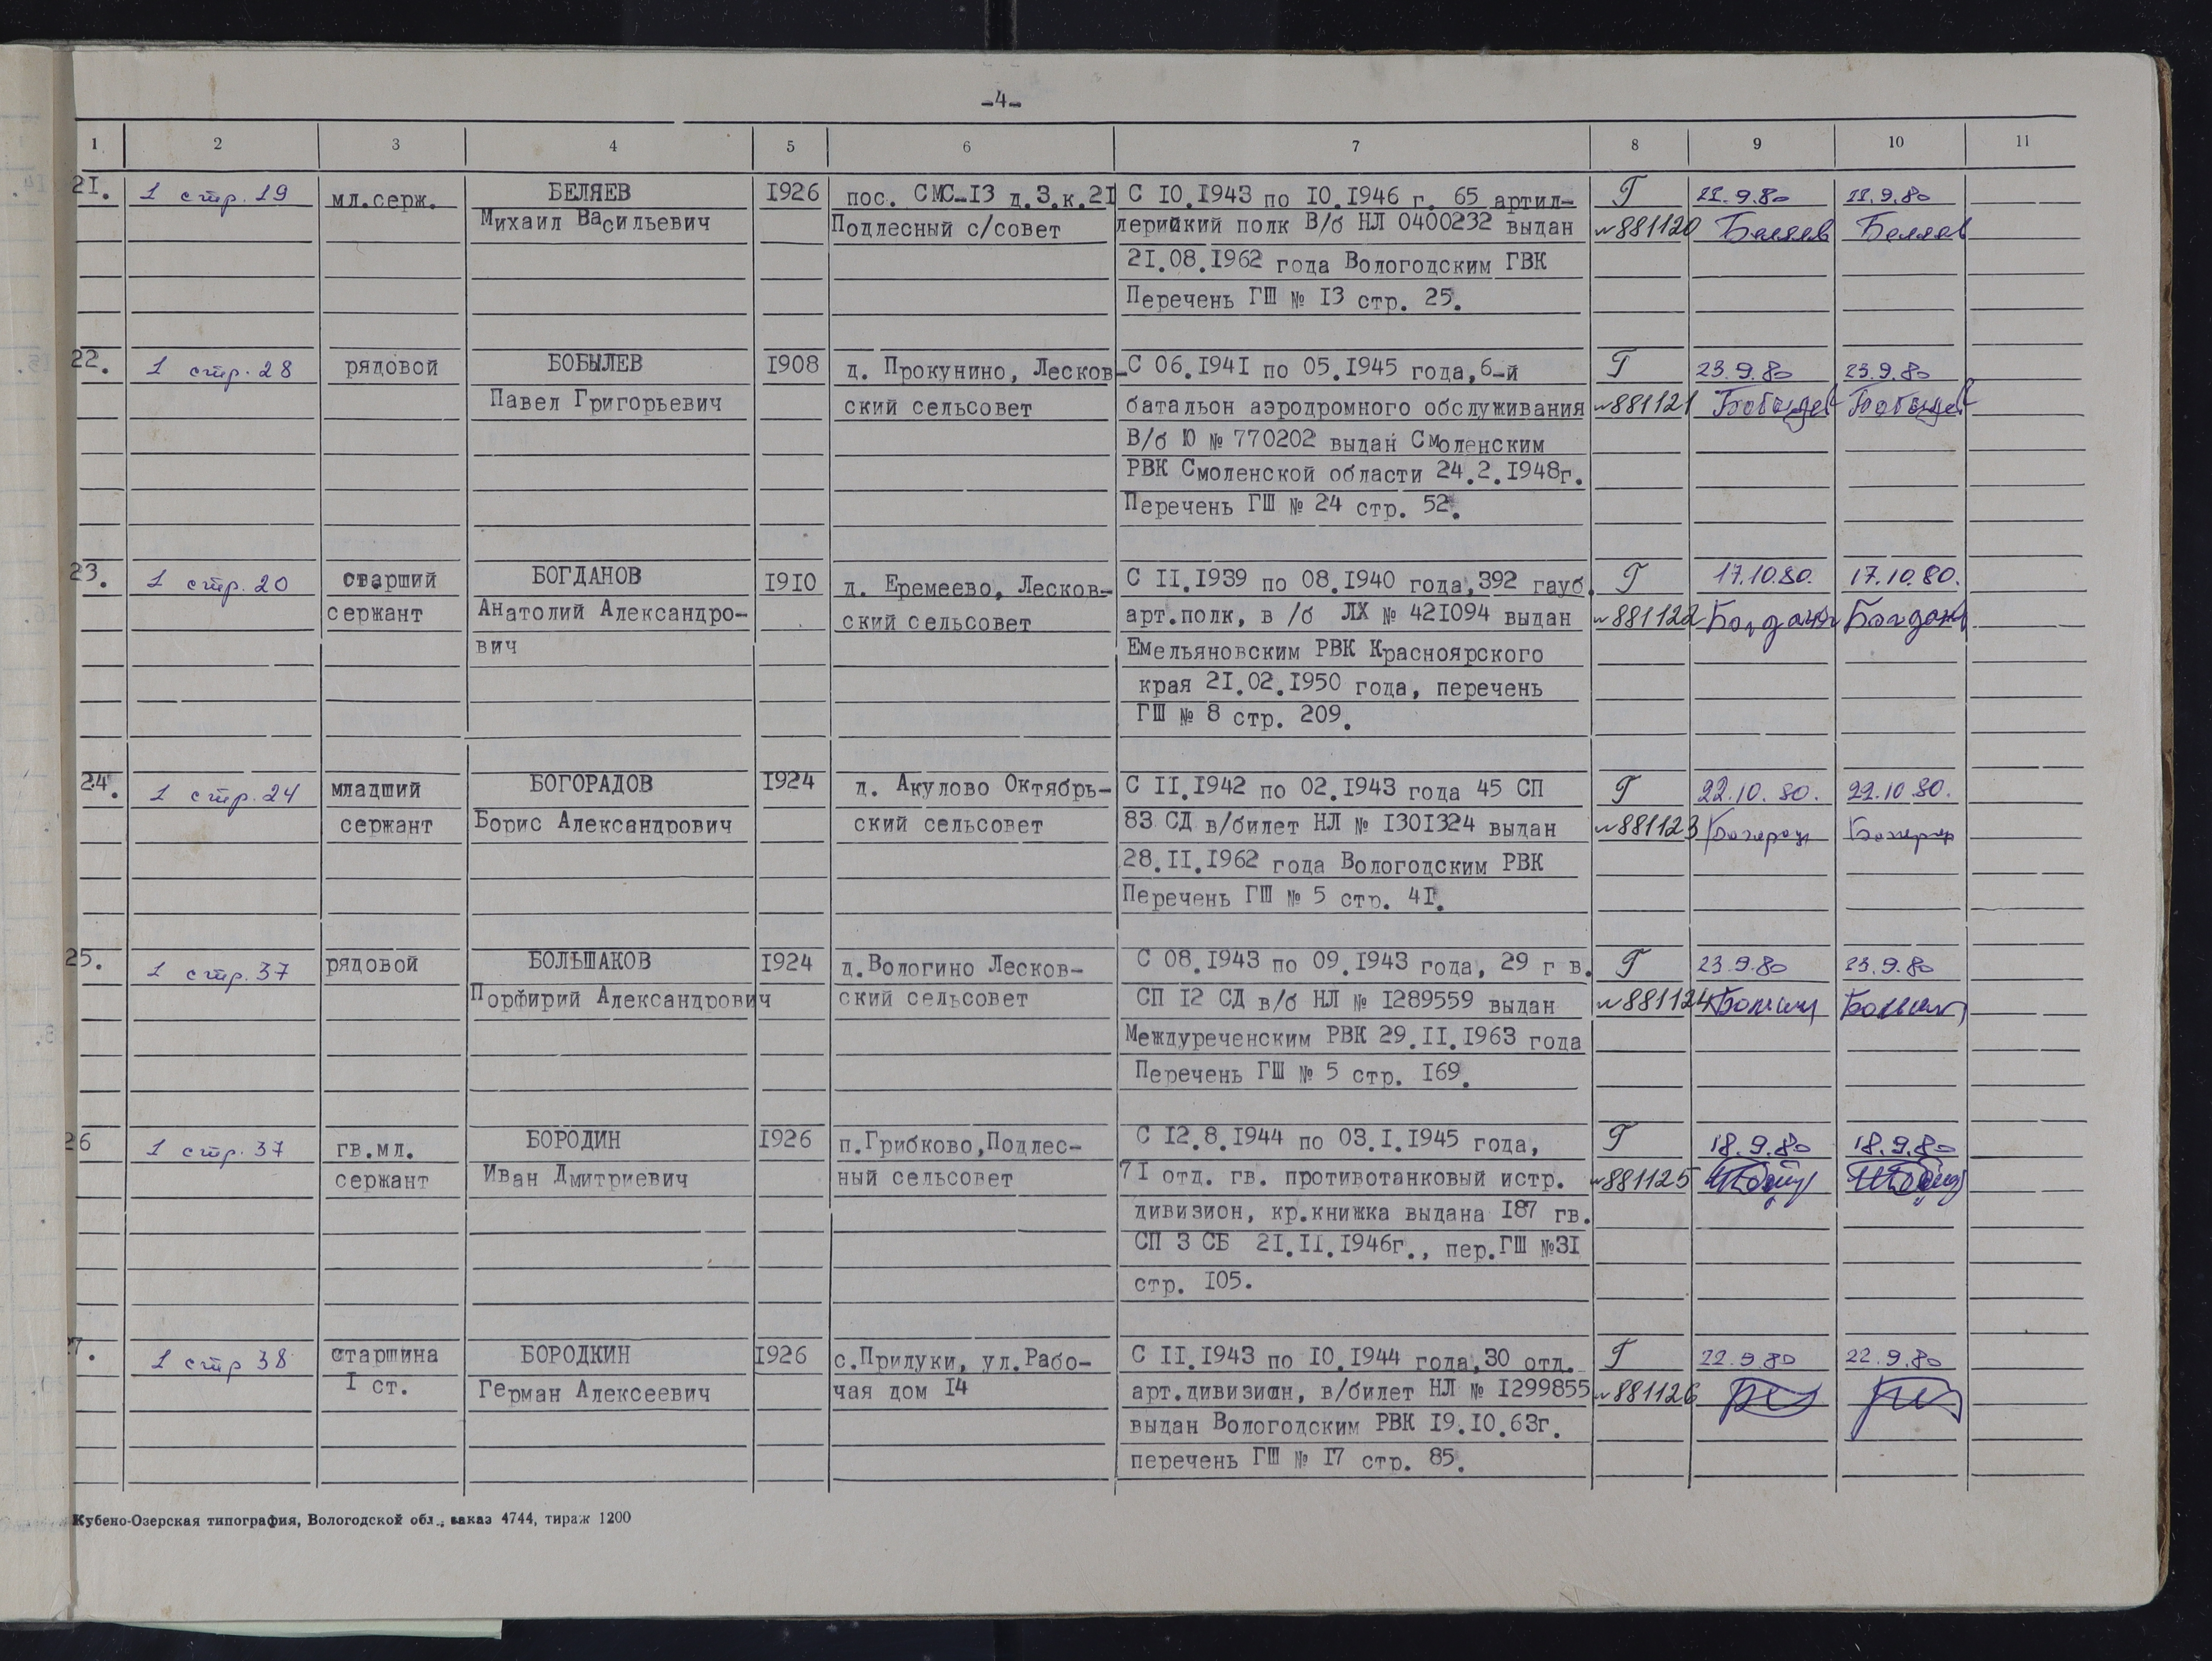 -4-
1 2 3 4 5 6 7 8 9 10 11
21. 1 стр. 19 мл.серж. БЕЛЯЕВ 1926 пос. СМС-13 д.3.к.21 С 10.1943 по 10.1946 г. 65 артил- Г 11.9.80 11.9.80
Михаил Васильевич Подлесный с/совет лерийкий полк В/б НЛ 0400232 выдан №881120 Беляев Беляев
21.08.1962 года Вологодским ГВК
Перечень ГШ № 13 стр. 25.
22. 1 стр. 28 рядовой БОБЫЛЕВ 1908 д. Прокунино, Лесков- С 06.1941 по 05.1945 года,6-й Г 23.9.80 23.9.80
Павел Григорьевич ский сельсовет батальон аэродромного обслуживания №881121 Бобылев Бобылев
В/б Ю № 770202 выдан Смоленским
РВК Смоленской области 24.2.1948г.
Перечень ГШ № 24 стр. 52.
23. 1 стр. 20 старший БОГДАНОВ 1910 д. Еремеево, Лесков- С 11.1939 по 08.1940 года,392 гауб. Г 17.10.80. 17.10.80.
сержант Анатолий Александро- ский сельсовет арт.полк, в /б ЛХ № 421094 выдан №881122 Богданов Богданов
вич Емельяновским РВК Красноярского
края 21.02.1950 года, перечень
ГШ № 8 стр. 209.
24. 1 стр. 24 младший БОГОРАДОВ 1924 д. Акулово Октябрь- С 11.1942 по 02.1943 года 45 СП Г 22.10.80. 22.10.80.
сержант Борис Александрович ский сельсовет 83 СД в/билет НЛ № 1301324 выдан №881123
28.11.1962 года Вологодским РВК
Перечень ГШ № 5 стр. 41.
25. 1 стр. 37 рядовой БОЛЬШАКОВ 1924 д.Вологино Лесков- С 08.1943 по 09.1943 года, 29 г в. Г 23.9.80 23.9.80
Порфирий Александрович ский сельсовет СП 12 СД в/б НЛ № 1289559 выдан №881124
Междуреченским РВК 29.11.1963 года
Перечень ГШ № 5 стр. 169.
26 1 стр. 37 гв.мл. БОРОДИН 1926 п.Грибково,Подлес- С 12.8.1944 по 03.1.1945 года, Г 18.9.80 18.9.80
сержант Иван Дмитриевич ный сельсовет 71 отд. гв. противотанковый истр. №881125
дивизион, кр.книжка выдана 187 гв.
СП 3 СБ 21.11.1946г., пер.ГШ №31
стр. 105.
7. 1 стр 38 старшина БОРОДКИН 1926 с.Прилуки, ул.Рабо- С 11.1943 по 10.1944 года,30 отд. Г 22.9.80 22.9.80
1 ст. Герман Алексеевич чая дом 14 арт.дивизион, в/билет НЛ № 1299855 №881126
выдан Вологодским РВК 19.10.63г.
перечень ГШ № 17 стр. 85.
Кубено-Озерская типография, Вологодской обл., заказ 4744, тираж 1200